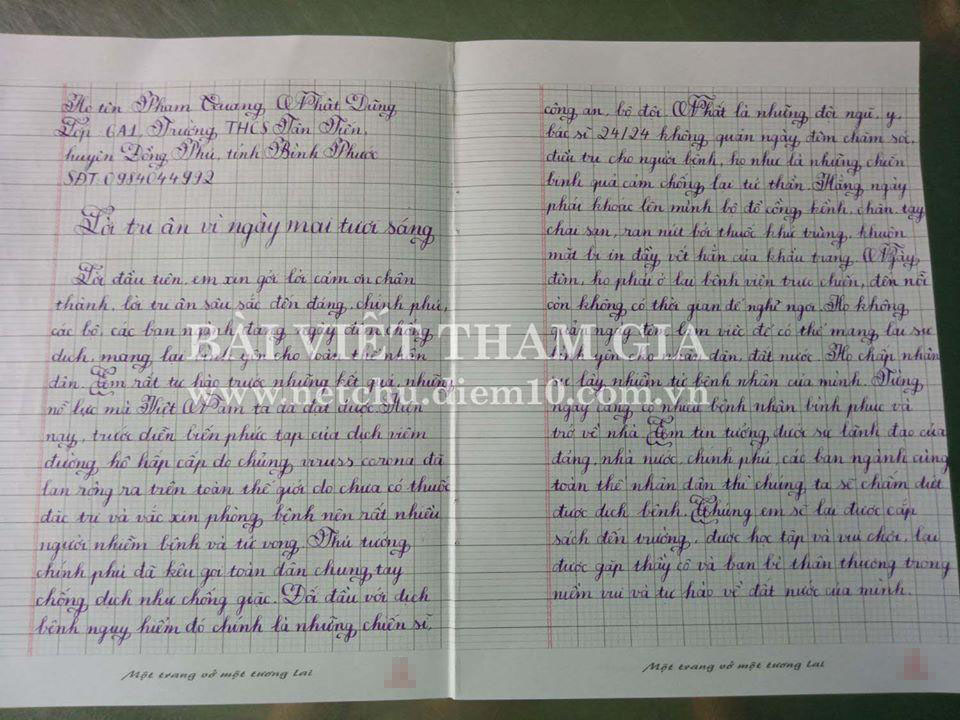 Họ tên Phạm Quang Nhật Dũng
Lớp 6A1, Trường THCS Tân Tiến,
huyện Đồng Phú, tỉnh Bình Phước
SĐT 0984044992
Lời tri ân vì ngày mai tươi sáng
Lời đầu tiên, em xin gởi lời cảm ơn chân
thành, lời tri ân sâu sắc đến đảng, chính phủ,
các bộ, các ban ngành đang ngày đêm chống
dịch, mang lại bình yên cho toàn thể nhân
dân. Em rất tự hào trước những kết quả, những
nỗ lực mà Việt Nam ta đã đạt được. Hiện
nay, trước diễn biến phức tạp của dịch viêm
đường hô hấp cấp do chủng viruss corona đã
lan rộng ra trên toàn thế giới do chưa có thuốc
đặc trị và vắc xin phòng bệnh nên rất nhiều
người nhiễm bệnh và tử vong. Thủ tướng
chính phủ đã kêu gọi toàn dân chung tay
chống dịch như chống giặc. Đối đầu với dịch
bệnh nguy hiểm đó chính là những chiến sĩ,
Một trang vở một tương lai
công an, bộ đội. Nhất là những đội ngũ, y,
bác sĩ 24/24 không quản ngày đêm chăm sóc,
điều trị cho người bệnh, họ như là những chiến
binh quả cảm chống lại tử thần. Hằng ngày
phải khoác lên mình bộ đồ cồng kềnh, chân tay
chai sạn, rạn nứt bởi thuốc khử trùng, khuôn
mặt bị in đầy vết hằn của khẩu trang. Ngày
đêm, họ phải ở lại bệnh viện trực chiến, đến nỗi
còn không có thời gian để nghỉ ngơi. Họ không
quản ngày đêm làm việc để có thể mang lại sự
bình yên cho nhân dân, đất nước. Họ chấp nhận
sự lây nhiễm từ bệnh nhân của mình. Từng
ngày càng có nhiều bệnh nhân bình phục và
trở về nhà. Em tin tưởng dưới sự lãnh đạo của
đảng, nhà nước, chính phủ, các ban ngành cùng
toàn thể nhân dân thì chúng ta sẽ chấm dứt
được dịch bệnh. Chúng em sẽ lại được cắp
sách đến trường, được học tập và vui chơi, lại
được gặp thầy cô và bạn bè thân thương trong
niềm vui và tự hào về đất nước của mình.
Một trang vở một tương lai
BÀI VIẾT THAM GIA
www.netchu.diem10.com.vn